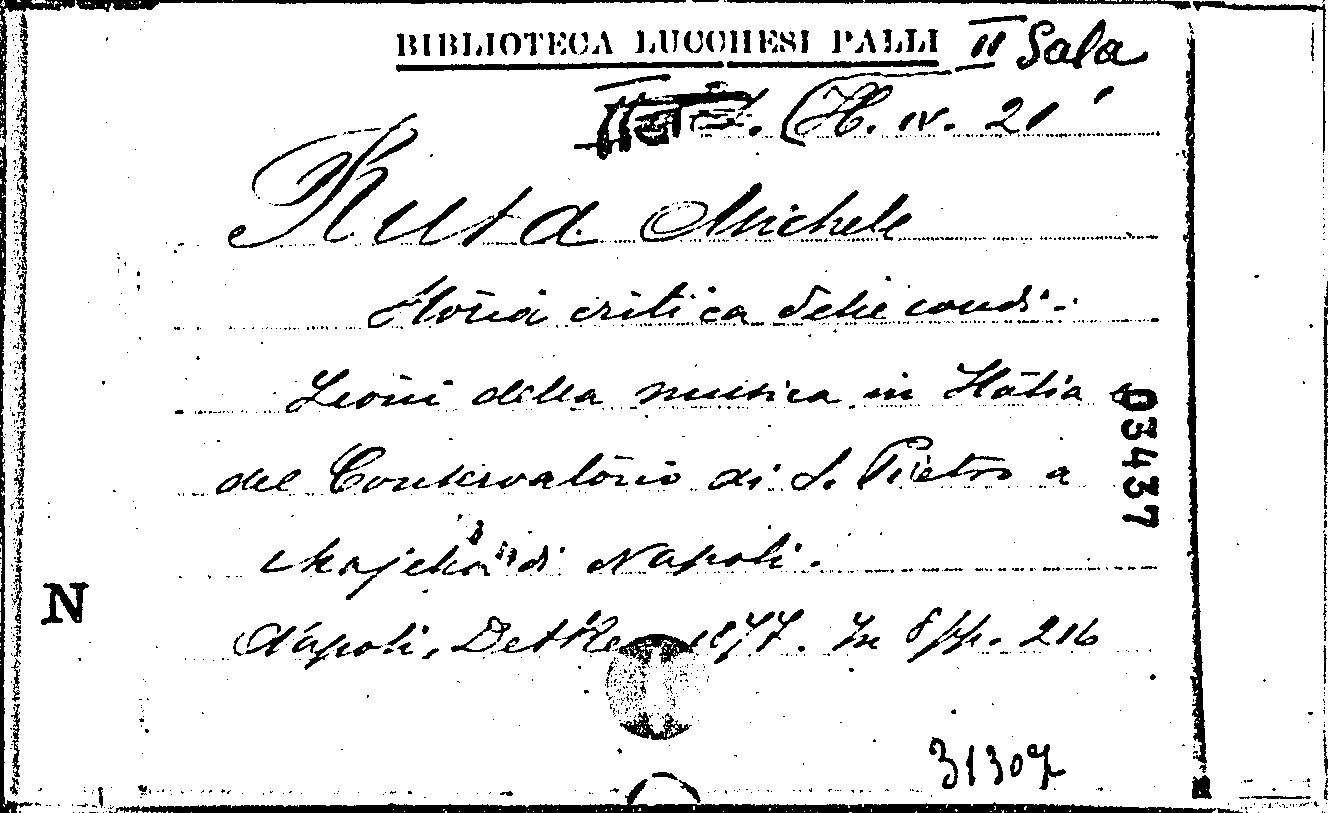 BIBLIOTECA LUCCHESI PALLI II Sala
H. IV. 21
Ruta Michele
Storia critica delle condi-
zioni della musica in Italia e
del Conservatorio di S. Pietro a
Majella di Napoli.
Napoli, Detken 1877. In 8 pp. 216
03437
N
31307